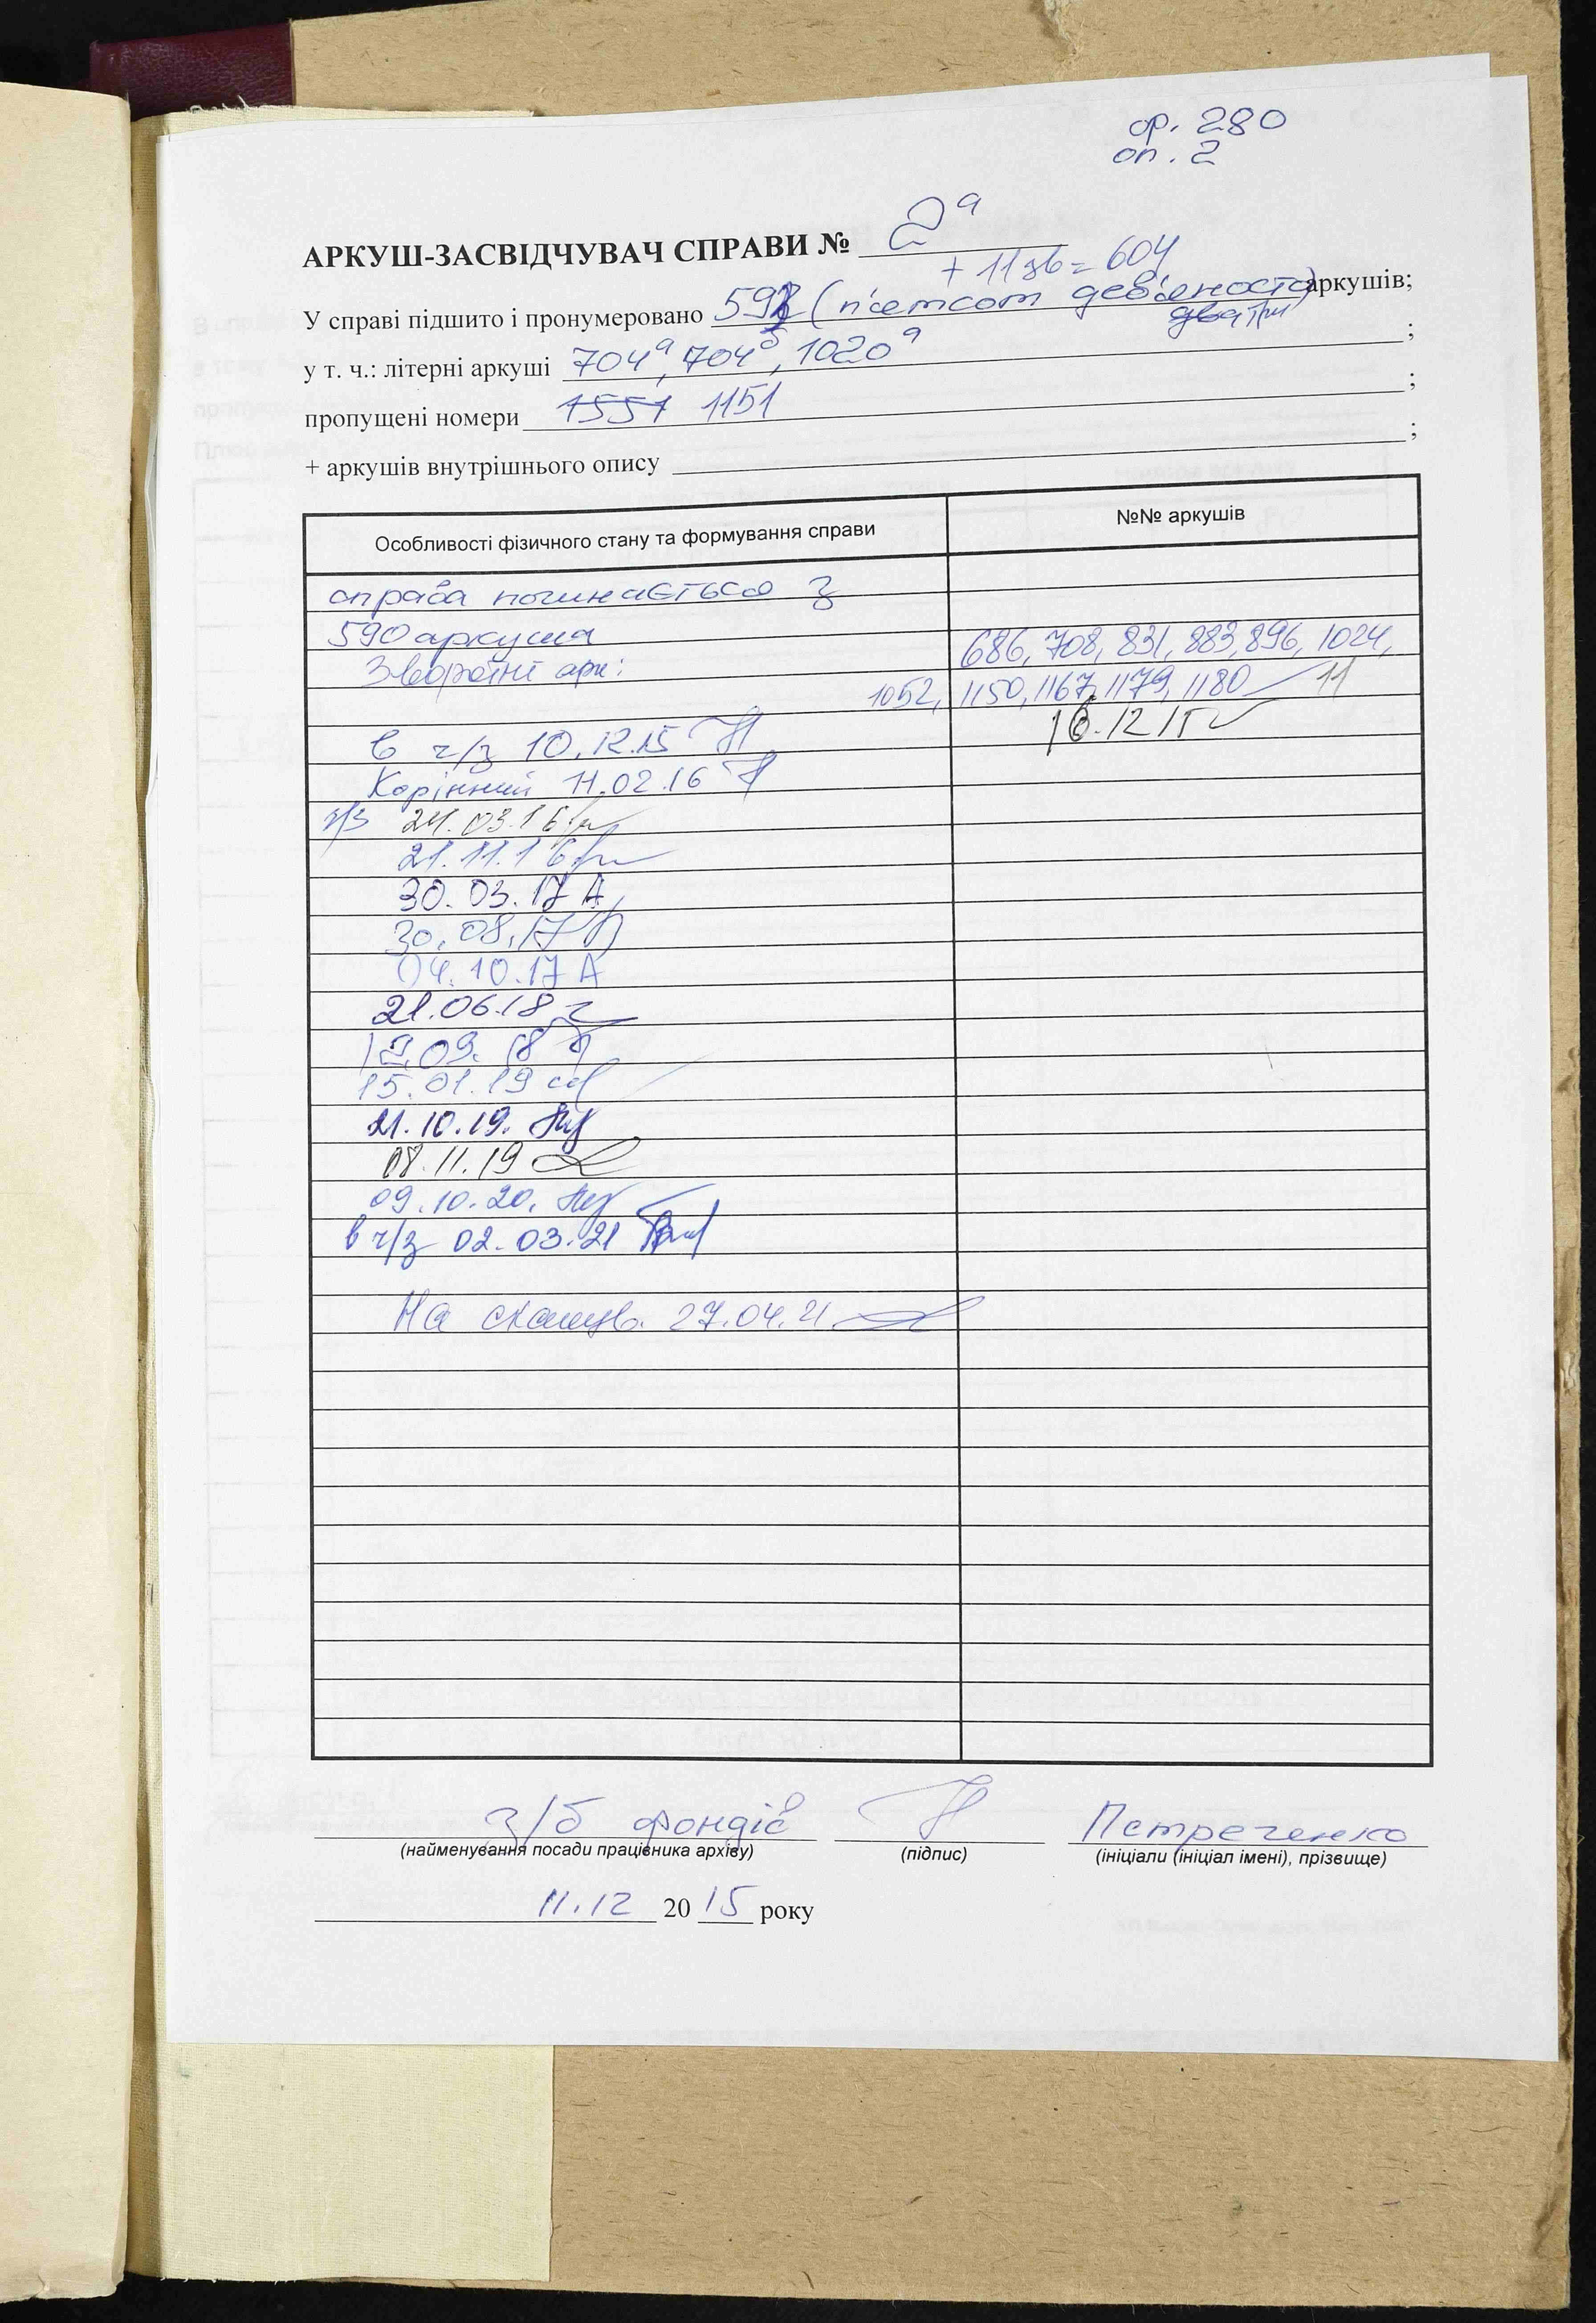 ф. 280
оп. 2
АРКУШ-ЗАСВІДЧУВАЧ СПРАВИ № 2а
+ 11 зв = 604
У справі підшито і пронумеровано 593 (п'ятсот дев'яносто) аркушів;
два три
у т. ч.: літерні аркуші 704а, 704б, 1020а ;
пропущені номери 1551 1151 ;
+ аркушів внутрішнього опису ;
Особливості фізичного стану та формування справи №№ аркушів
справа починається з
590 аркуша
686, 708, 831, 883, 896, 1024,
Зворотні арк:
1052, 1150, 1167, 1179, 1180 11
в ч/з 10.12.15 16.12.15
Корінний 11.02.16
ч/з 24.03.16
21.11.16
30.03.17 А
30.08.17
04.10.17 А
21.06.18
09.18
15.01.19
21.10.19.
08.11.19
09.10.20.
в ч/з 02.03.21
На сканув. 27.04.21
з/б фондів Петреченко
(найменування посади працівника архіву) (підпис) (ініціали (ініціал імені), прізвище)
11.12 20 15 року